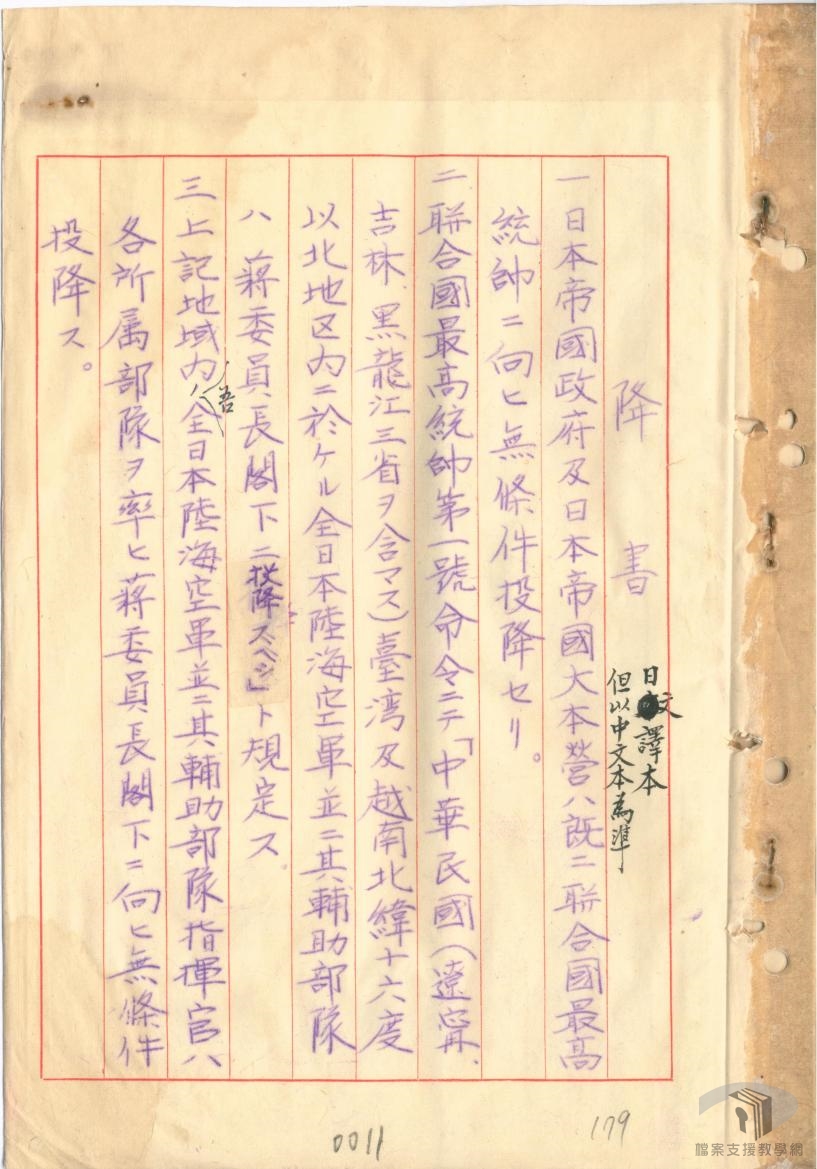 降書
日文譯本
但以中文本為準
一日本帝國政府及日本帝國大本營ハ既ニ聯合國最高
統帥ニ向ヒ無條件投降セリ。
二聯合國最高統帥第一號命令ニテ「中華民國(遼寧、
吉林、黑龍江三省ヲ含マス)臺湾及越南北緯十六度
以北地区内ニ於ケル全日本陸海空軍並ニ其輔助部隊
ハ蔣委員長閣下ニ投降スベシ」ト規定ス
三上記地域内ノ全日本陸海空軍並ニ其輔助部隊指揮官ハ
吾
各所属部隊ヲ率ヒ蔣委員長閣下ニ向ヒ無條件
投降ス。
0011
179
檔案支援教學網